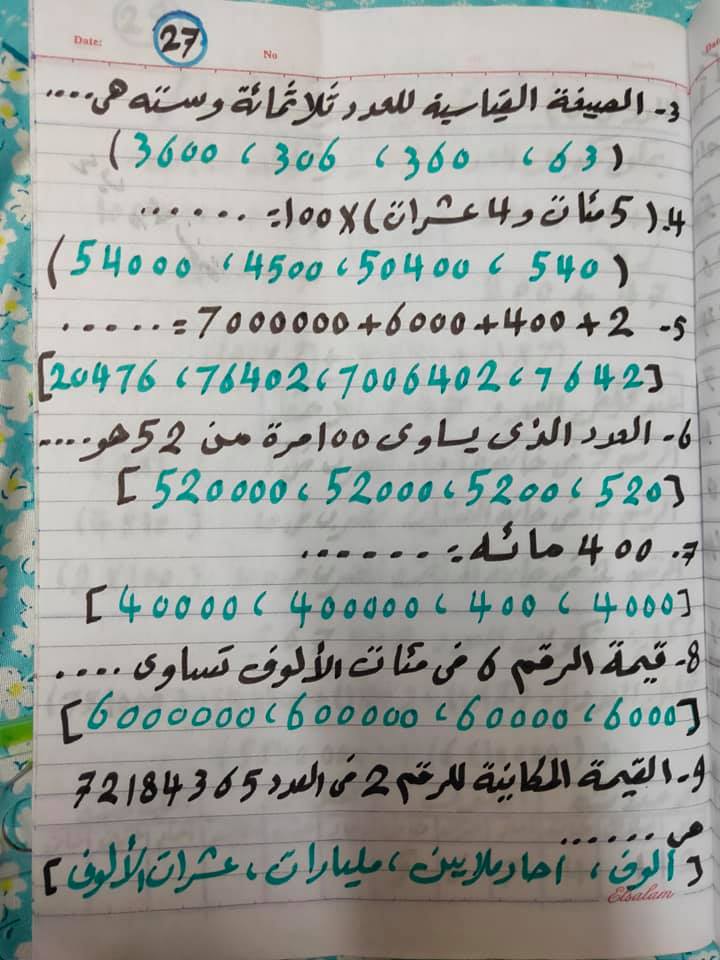 Date:
27
No
3- الصيغة القياسية للعدد ثلاثمائة وسته هى....
( 63 ، 360 ، 306 ، 3600 )
4. ( 5 مئات و 4 عشرات ) X 100 = ......
( 540 ، 50400 ، 4500 ، 54000 )
5- 7000000+6000+400+2 = .....
[ 7642 ، 7006402 ، 76402 ، 20476 ]
6- العدد الذى يساوى 100 مرة من 52 هو....
[ 520 ، 5200 ، 52000 ، 520000 ]
7. 400 مائه = ......
[ 4000 ، 400 ، 400000 ، 40000 ]
8- قيمة الرقم 6 فى مئات الألوف تساوى ....
[ 6000 ، 60000 ، 600000 ، 6000000 ]
9- القيمة المكانية للرقم 2 فى العدد 72184365
هى ......
[ ألوف ، احاد ملايين ، مليارات ، عشرات الألوف ]
Elsalam